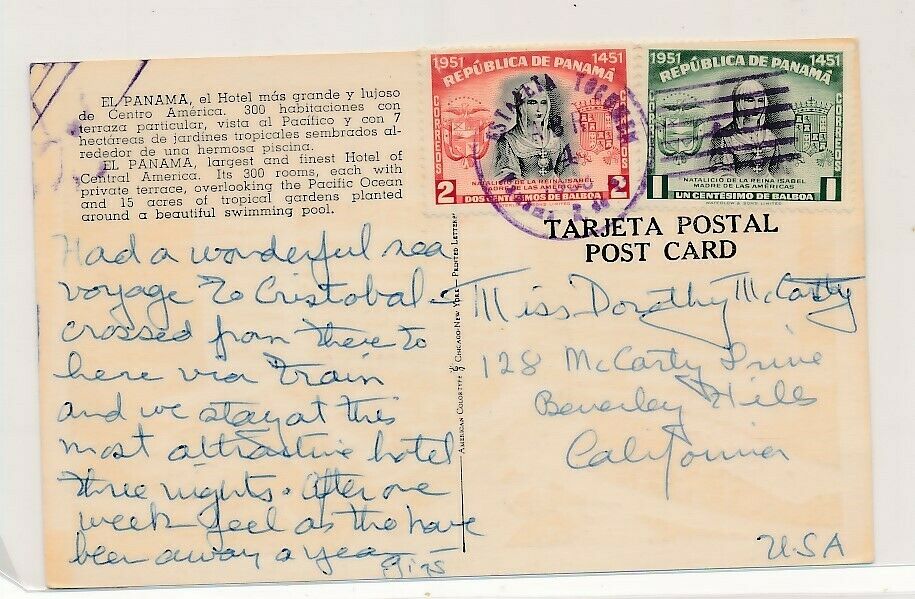 EL PANAMA, el Hotel más grande y lujoso
de Centro América. 300 habitaciones con
terraza particular, vista al Pacífico y con 7
hectáreas de jardines tropicales sembrados al-
rededor de una hermosa piscina.
EL PANAMA, largest and finest Hotel of
Central America. Its 300 rooms, each with
private terrace, overlooking the Pacific Ocean
and 15 acres of tropical gardens planted
around a beautiful swimming pool.
1951 1451
REPÚBLICA DE PANAMÁ
CORREOS
CORREOS
NATALICIO DE LA REINA ISABEL
MADRE DE LAS AMÉRICAS
2 DOS CENTÉSIMOS DE BALBOA 2
1951 1451
REPÚBLICA DE PANAMÁ
CORREOS
CORREOS
NATALICIO DE LA REINA ISABEL
MADRE DE LAS AMÉRICAS
1 UN CENTÉSIMO DE BALBOA 1
WATERLOW & SONS LIMITED
ESTAFETA TOCUMEN
TARJETA POSTAL
POST CARD
Had a wonderful sea
voyage to Cristobal -
crossed from there to
here via train
and we stay at this
most attractive hotel
three nights. After one
week feel as tho have
been away a year
AMERICAN COLORTYPE CHICAGO-NEW YORK—PRINTED LETTER
Miss Dorothy McCarty
128 McCarty Drive
Beverley Hills
California
USA